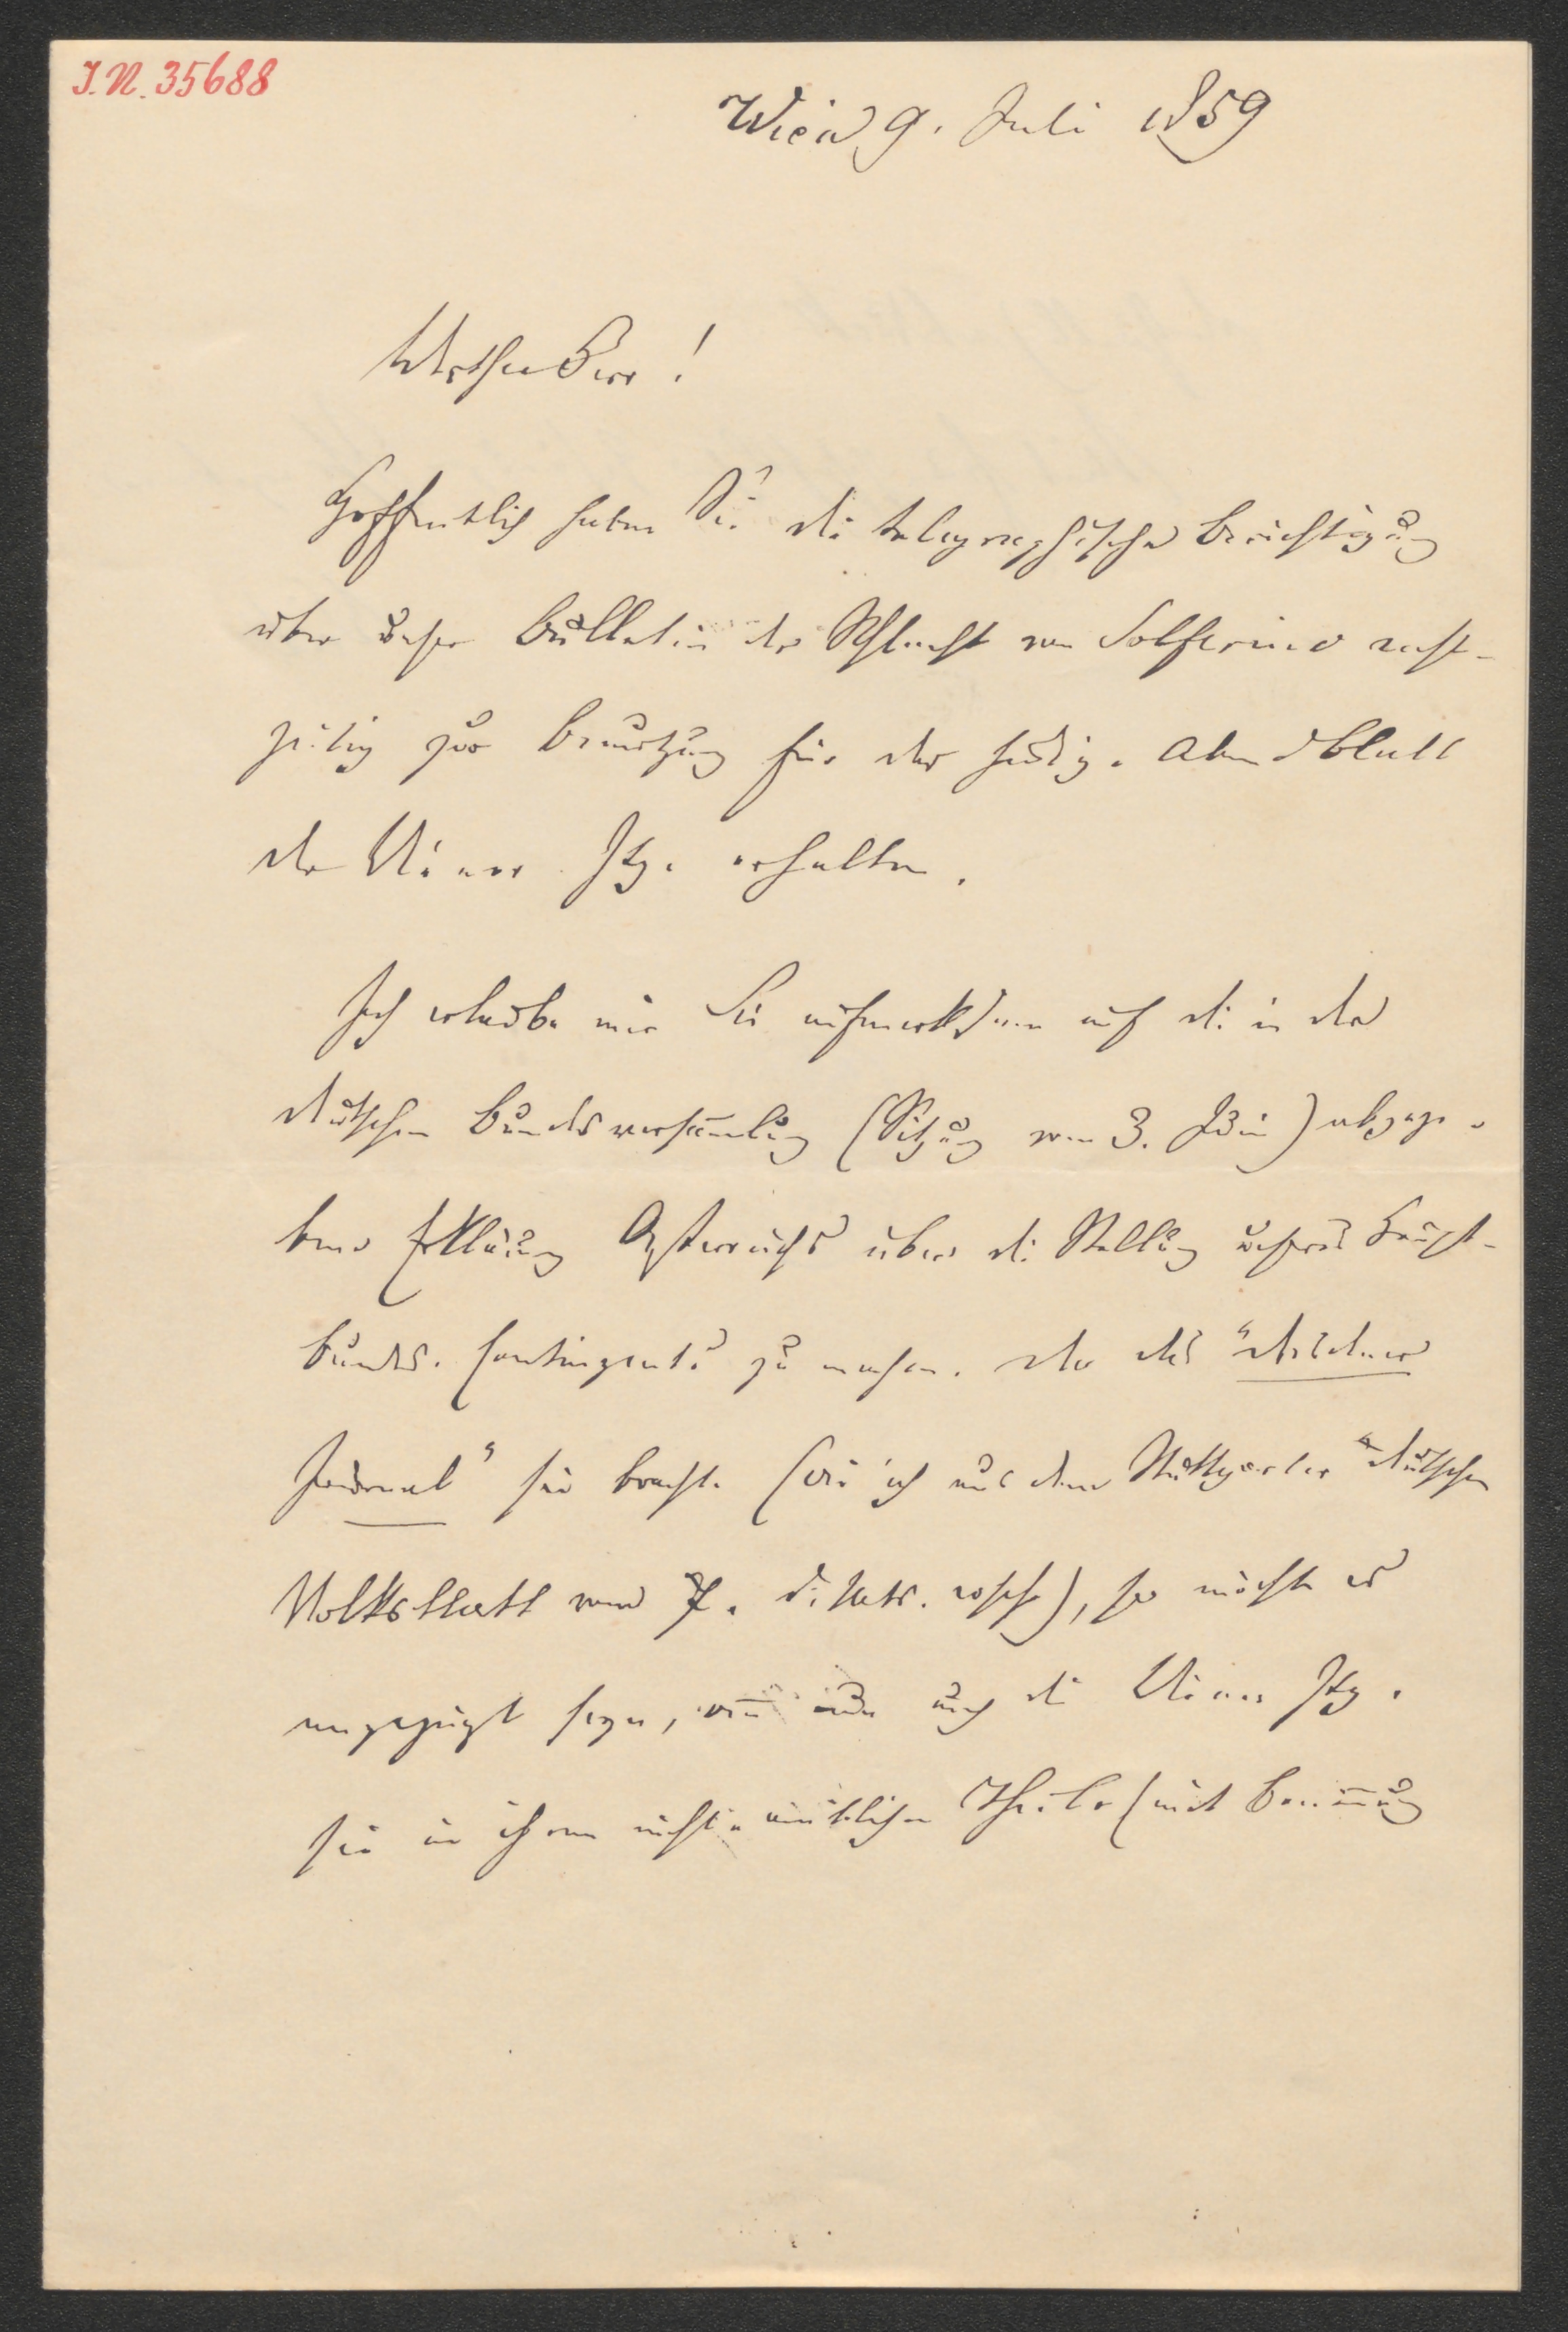 J.N. 35688
Wien 9. Juli 1859
Werther Herr!
Hoffentlich haben Sie die telegraphische Berichtigung
über unser Bulletin der Schlacht von Solferino recht-
zeitig zur Benutzung für das heutige Abendblatt
der Wiener Ztg. erhalten.
Ich erlaube mir Sie aufmerksam auf die in der
deutschen Bundesversammlung (Sitzung vom 3. Juni) abgege-
bene Erklärung Österreichs über die Stellung unseres Haupt-
bundes-Contingents zu machen. Da das "Dresdner
Journal" sie brachte (wie ich aus dem Stuttgarter "deutschen
Volksblatt vom 7. d. Mts. ersehe), so möchte es
angezeigt seyn, auch die Wiener Ztg.
sie in ihrem nicht-amtlichen Theile (mit